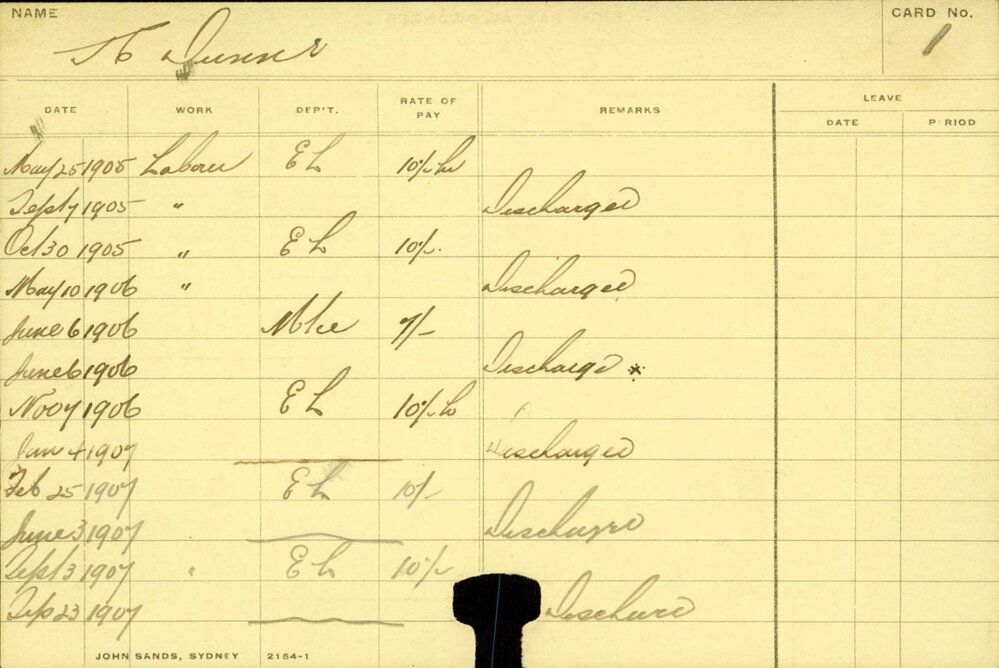 NAME CARD No.
Dunne 1
DATE WORK DEP'T. RATE OF PAY REMARKS LEAVE
DATE PERIOD
May 25 1905 Labourer E L 10/-
Sept 7 1905 " Discharged
Oct 30 1905 " E L 10/-.
May 10 1906 " Discharged
June 6 1906 7/-
June 6 1906 Discharge *
Nov 7 1906 E L 10/-
Jan 4 1907 Discharged
Feb 25 1907 E L 10/-
June 3 1907
Sept 3 1907 " E L 10/-
Sep 23 1907
JOHN SANDS, SYDNEY 2154-1